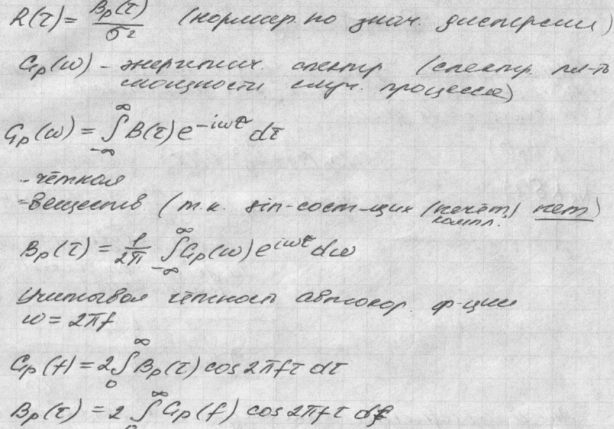 R(τ) = Bp(τ)/σ² (нормир. по знач. дисперсии)
Gp(ω) - энергетич. спектр (спектр пл-ть
мощности случ. процесса)
Gp(ω) = ∫_{-∞}^{∞} B(τ) e^{-iωτ} dτ
- чётная
- веществ (т.к. sin-сост-щих (нечёт) нет)
компл.
Bp(τ) = 1/2π ∫_{-∞}^{∞} Gp(ω) e^{iωτ} dω
Учитывая чётность автокор. ф-ции
ω = 2πf
Gp(f) = 2 ∫_0^∞ Bp(τ) cos 2πfτ dτ
Bp(τ) = 2 ∫_0^∞ Gp(f) cos 2πfτ df